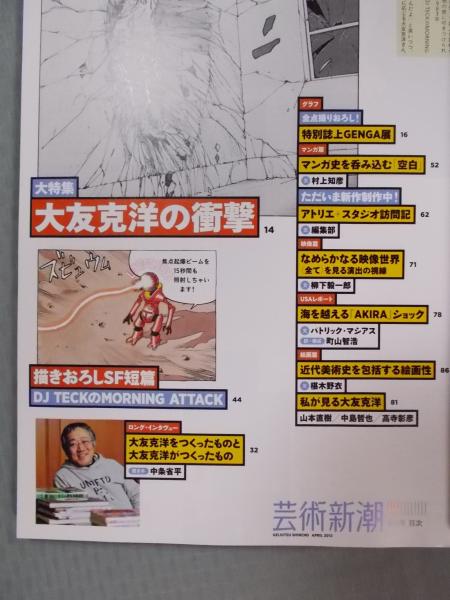 大特集
大友克洋の衝撃 14
ズビュウム
焦点起爆ビームを
15秒間も
照射しちゃい
ます!
描きおろしSF短篇
DJ TECKのMORNING ATTACK 44
ロング・インタヴュー
大友克洋をつくったものと
大友克洋がつくったもの 32
聞き手 中条省平
グラフ
全点撮りおろし!
特別誌上GENGA展 16
マンガ篇
マンガ史を呑み込む「空白」 52
文 村上知彦
ただいま新作制作中!
アトリエ+スタジオ訪問記 62
文 編集部
映像篇
なめらかなる映像世界 71
「全て」を見る演出の視線
文 柳下毅一郎
USAレポート
海を越える「AKIRA」ショック 78
文 パトリック・マシアス
訳・構成 町山智浩
絵画篇
近代美術史を包括する絵画性 86
文 椹木野衣
私が見る大友克洋 81
山本直樹/中島哲也/高寺彰彦
芸術新潮
GEIJUTSU SHINCHO APRIL 2012
目次